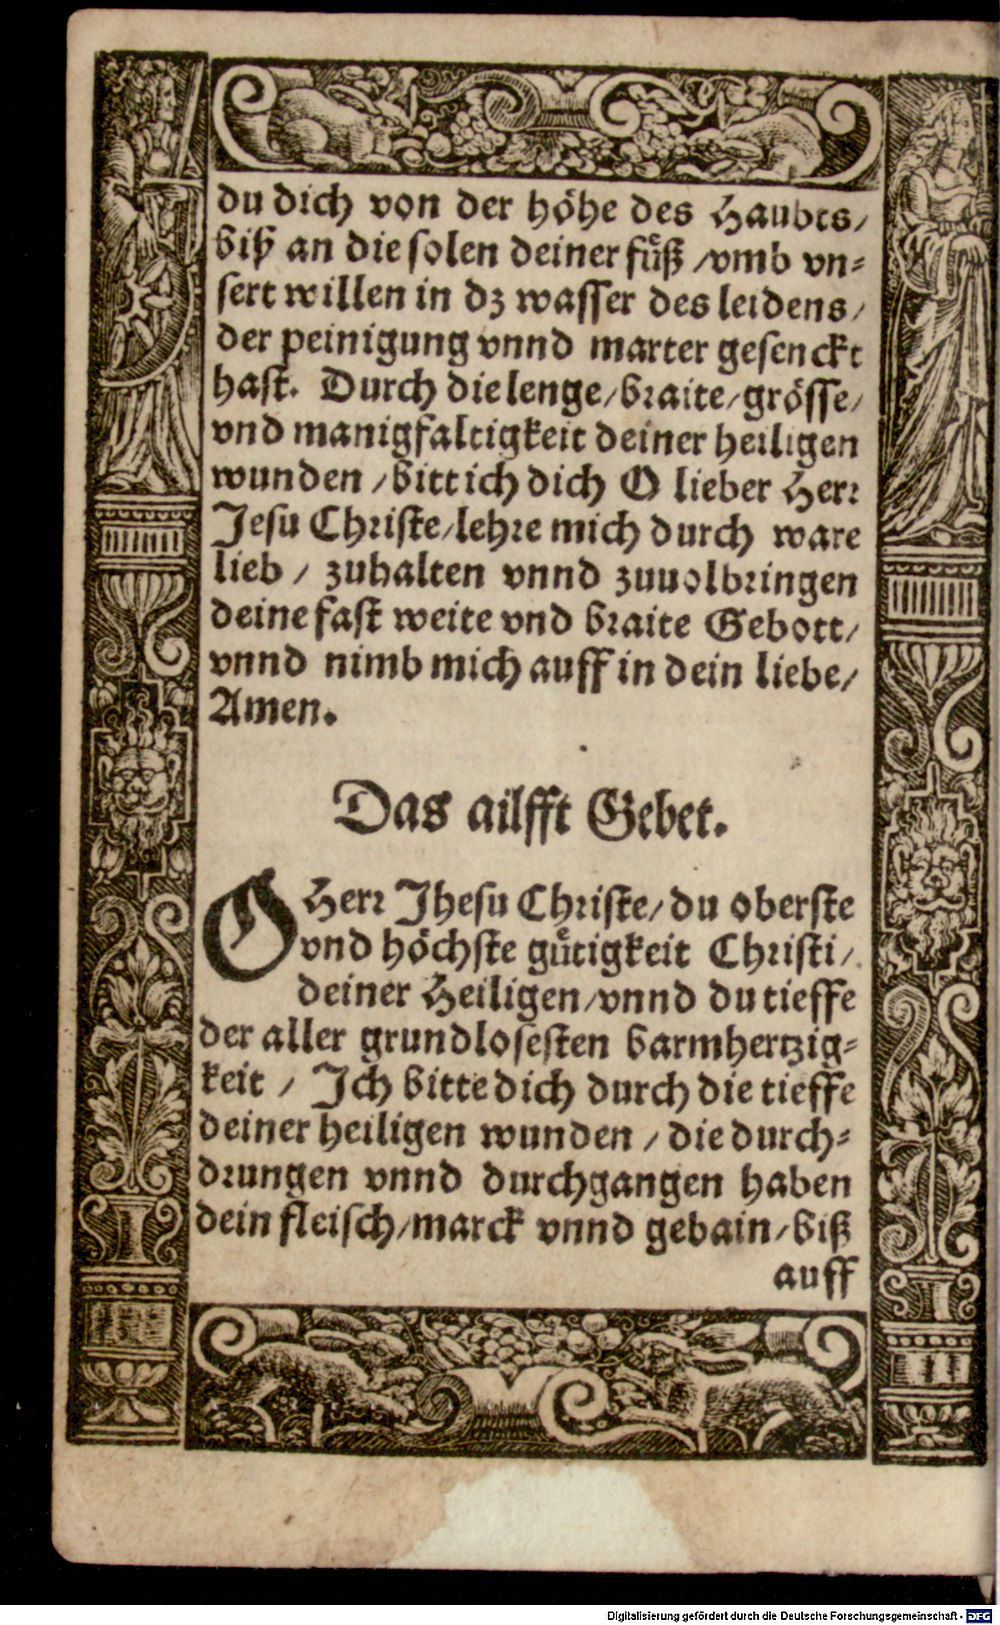 du dich von der höhe des Haubts/
biß an die solen deiner fuͤß /vmb vn⸗
sert willen in dz wasser des leidens/
der peinigung vnnd marter gesenckt
hast. Durch die lenge/braite/grösse/
vnd manigfaltigkeit deiner heiligen
wunden /bitt ich dich O lieber Herr
Jesu Christe/lehre mich durch ware
lieb / zuhalten vnnd zuuolbringen
deine fast weite vnd braite Gebott/
vnnd nimb mich auff in dein liebe/
Amen.
Das ailfft Gebet.
O Herr Jhesu Christe/du oberste
vnd höchste guͤtigkeit Christi/
deiner Heiligen/vnnd du tieffe
der aller grundlosesten barmhertzig⸗
keit / Ich bitte dich durch die tieffe
deiner heiligen wunden /die durch⸗
drungen vnnd durchgangen haben
dein fleisch/marck vnnd gebain/biß
auff
Digitalisierung gefördert durch die Deutsche Forschungsgemeinschaft - DFG